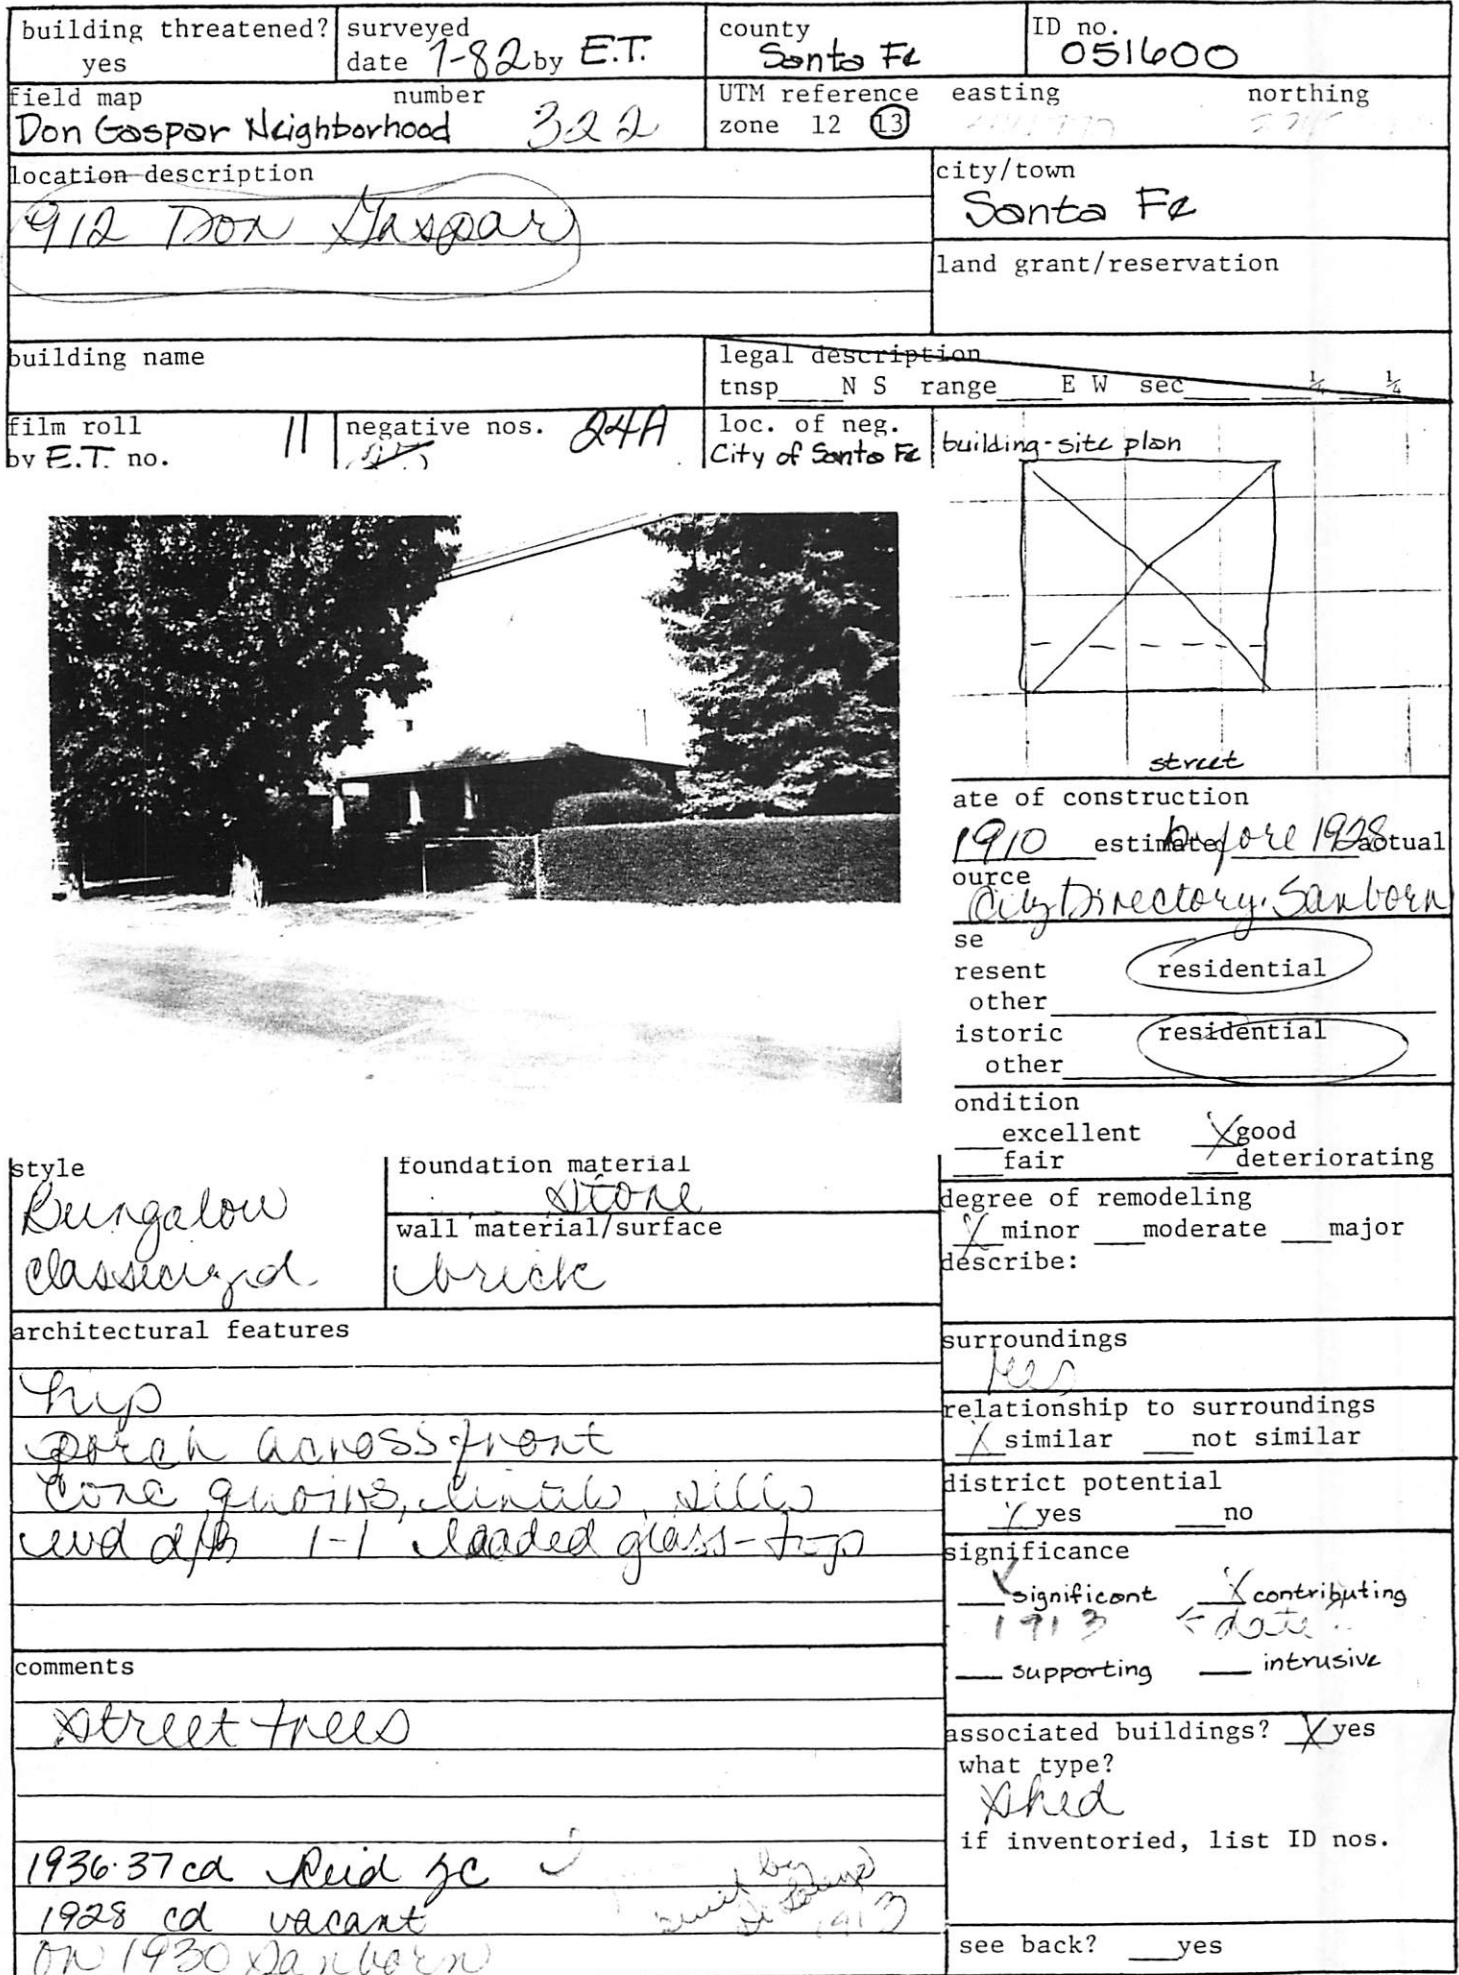 building threatened?
yes
surveyed
date 7-82 by E.T.
county
Santa Fe
ID no.
051600
field map number
Don Gaspar Neighborhood 322
UTM reference easting northing
zone 12 13
location description
912 Don Gaspar
city/town
Santa Fe
land grant/reservation
building name
legal description
tnsp____N S range____E W sec____ ___¼ ___¼
film roll
by E.T. no. 11
negative nos. 24A
loc. of neg.
City of Santa Fe
building-site plan
street
ate of construction
1910 estimated before 1928 actual
ource
City Directory. Sanborn
se
resent residential
other
istoric residential
other
ondition
___excellent X good
___fair ___deteriorating
style
Bungalow
classicized
foundation material
stone
wall material/surface
brick
degree of remodeling
X minor ___moderate ___major
describe:
architectural features
hip
porch across front
conc quoins, lintels, sills
wd d/h 1-1 leaded glass-top
surroundings
res
relationship to surroundings
X similar ___not similar
district potential
✓ yes ___no
significance
✓ significant X contributing
1913 ← date
___ supporting ___ intrusive
comments
street trees
1936-37 cd Reid JC
1928 cd vacant
on 1930 Sanborn
built by
1913
associated buildings? X yes
what type?
shed
if inventoried, list ID nos.
see back? ___yes